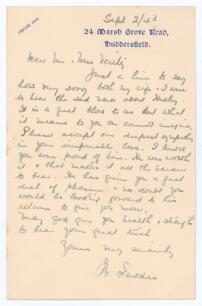 PHONE 3033
Sept 2/43
24 Marsh Grove Road,
Huddersfield.
Dear Mr. & Mrs
Just a line to say
how very sorry both my wife & I were
to hear the sad news about
is a great blow to us but what
it means to you one cannot imagine.
Please accept our deepest sympathy
in your irreparable loss. I know
you were proud of him. He was worth
it & that makes it all the harder
to bear. He has given you a great
deal of pleasure & no doubt you
would be looking forward to his
return to give you more.
May God give you health & strength
to bear your great trial
Yours very sincerely